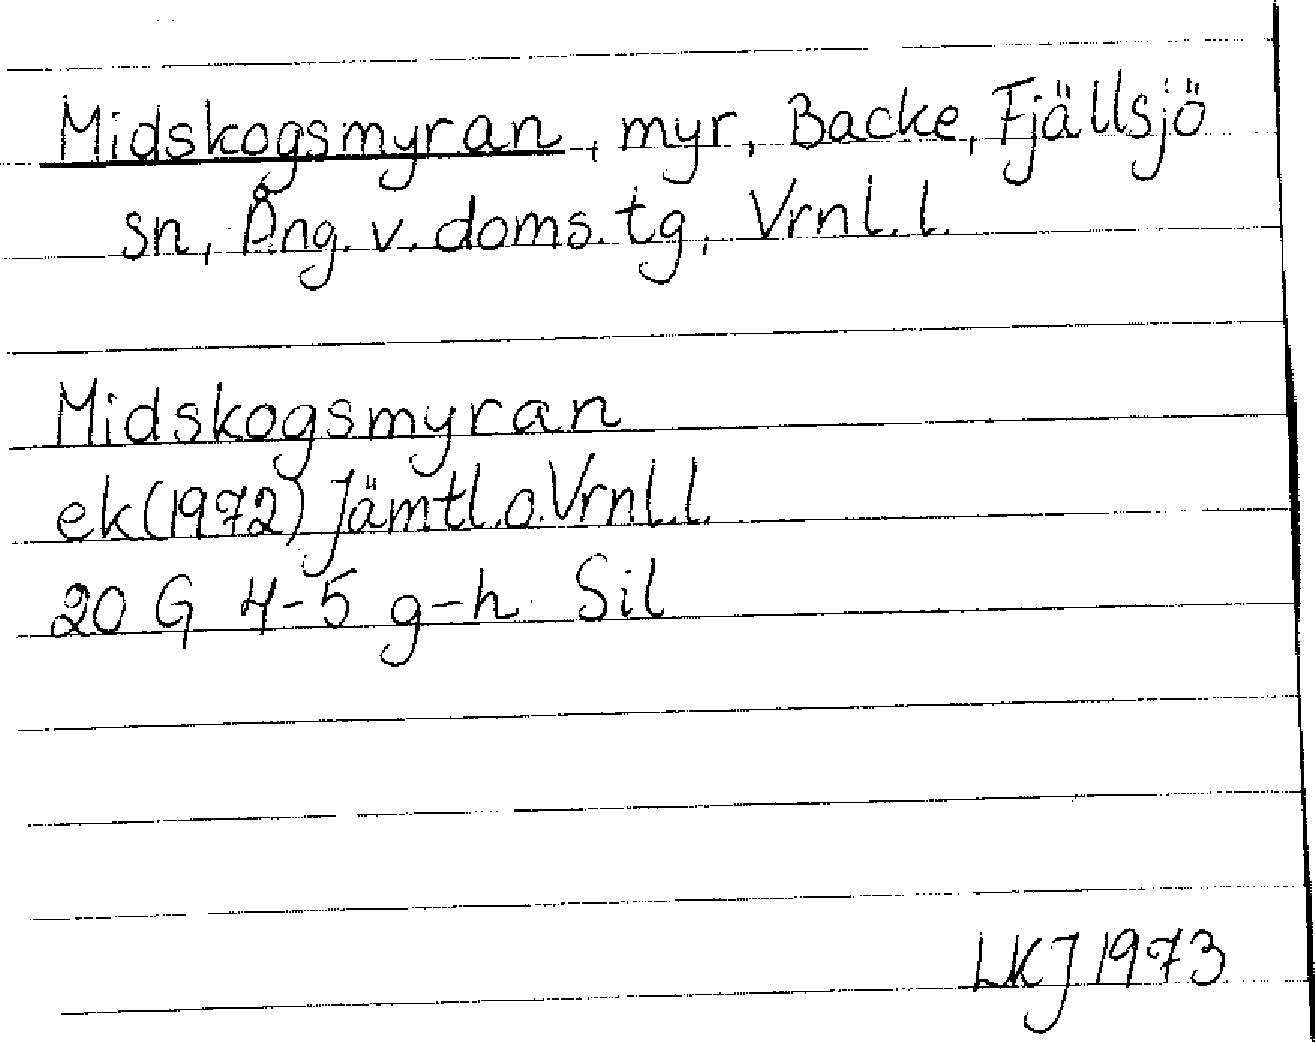 Midskogsmyran, myr, Backe, Fjällsjö
sn, Ång. v. doms. tg, Vrnl. l.
Midskogsmyran
ek (1972) Jämtl. o. Vrnl. l.
20 G 4-5 g-h Sil
LKJ 1973